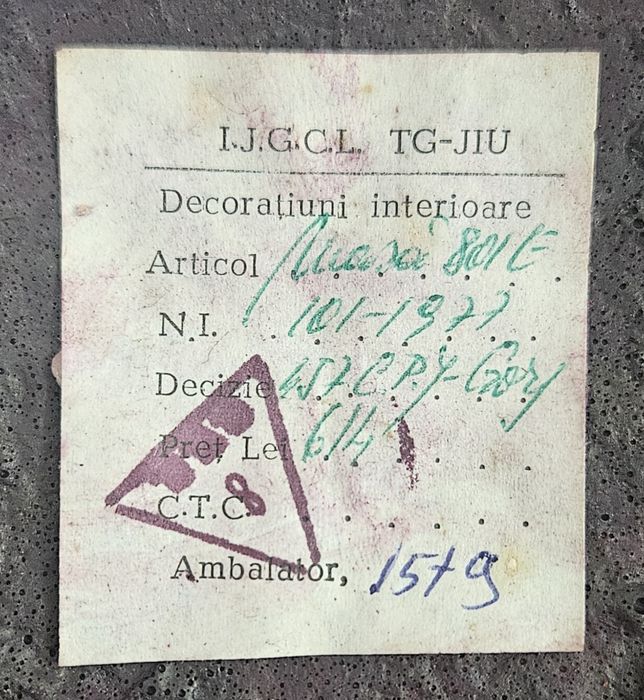 I.J.G.C.L. TG-JIU
Decorațiuni interioare
Articol Masă 801 E
N.I. 101-1977
Decizie 457 C.P.J-Gorj
Preț Lei 614
C.T.C. 8
Ambalator, 1579